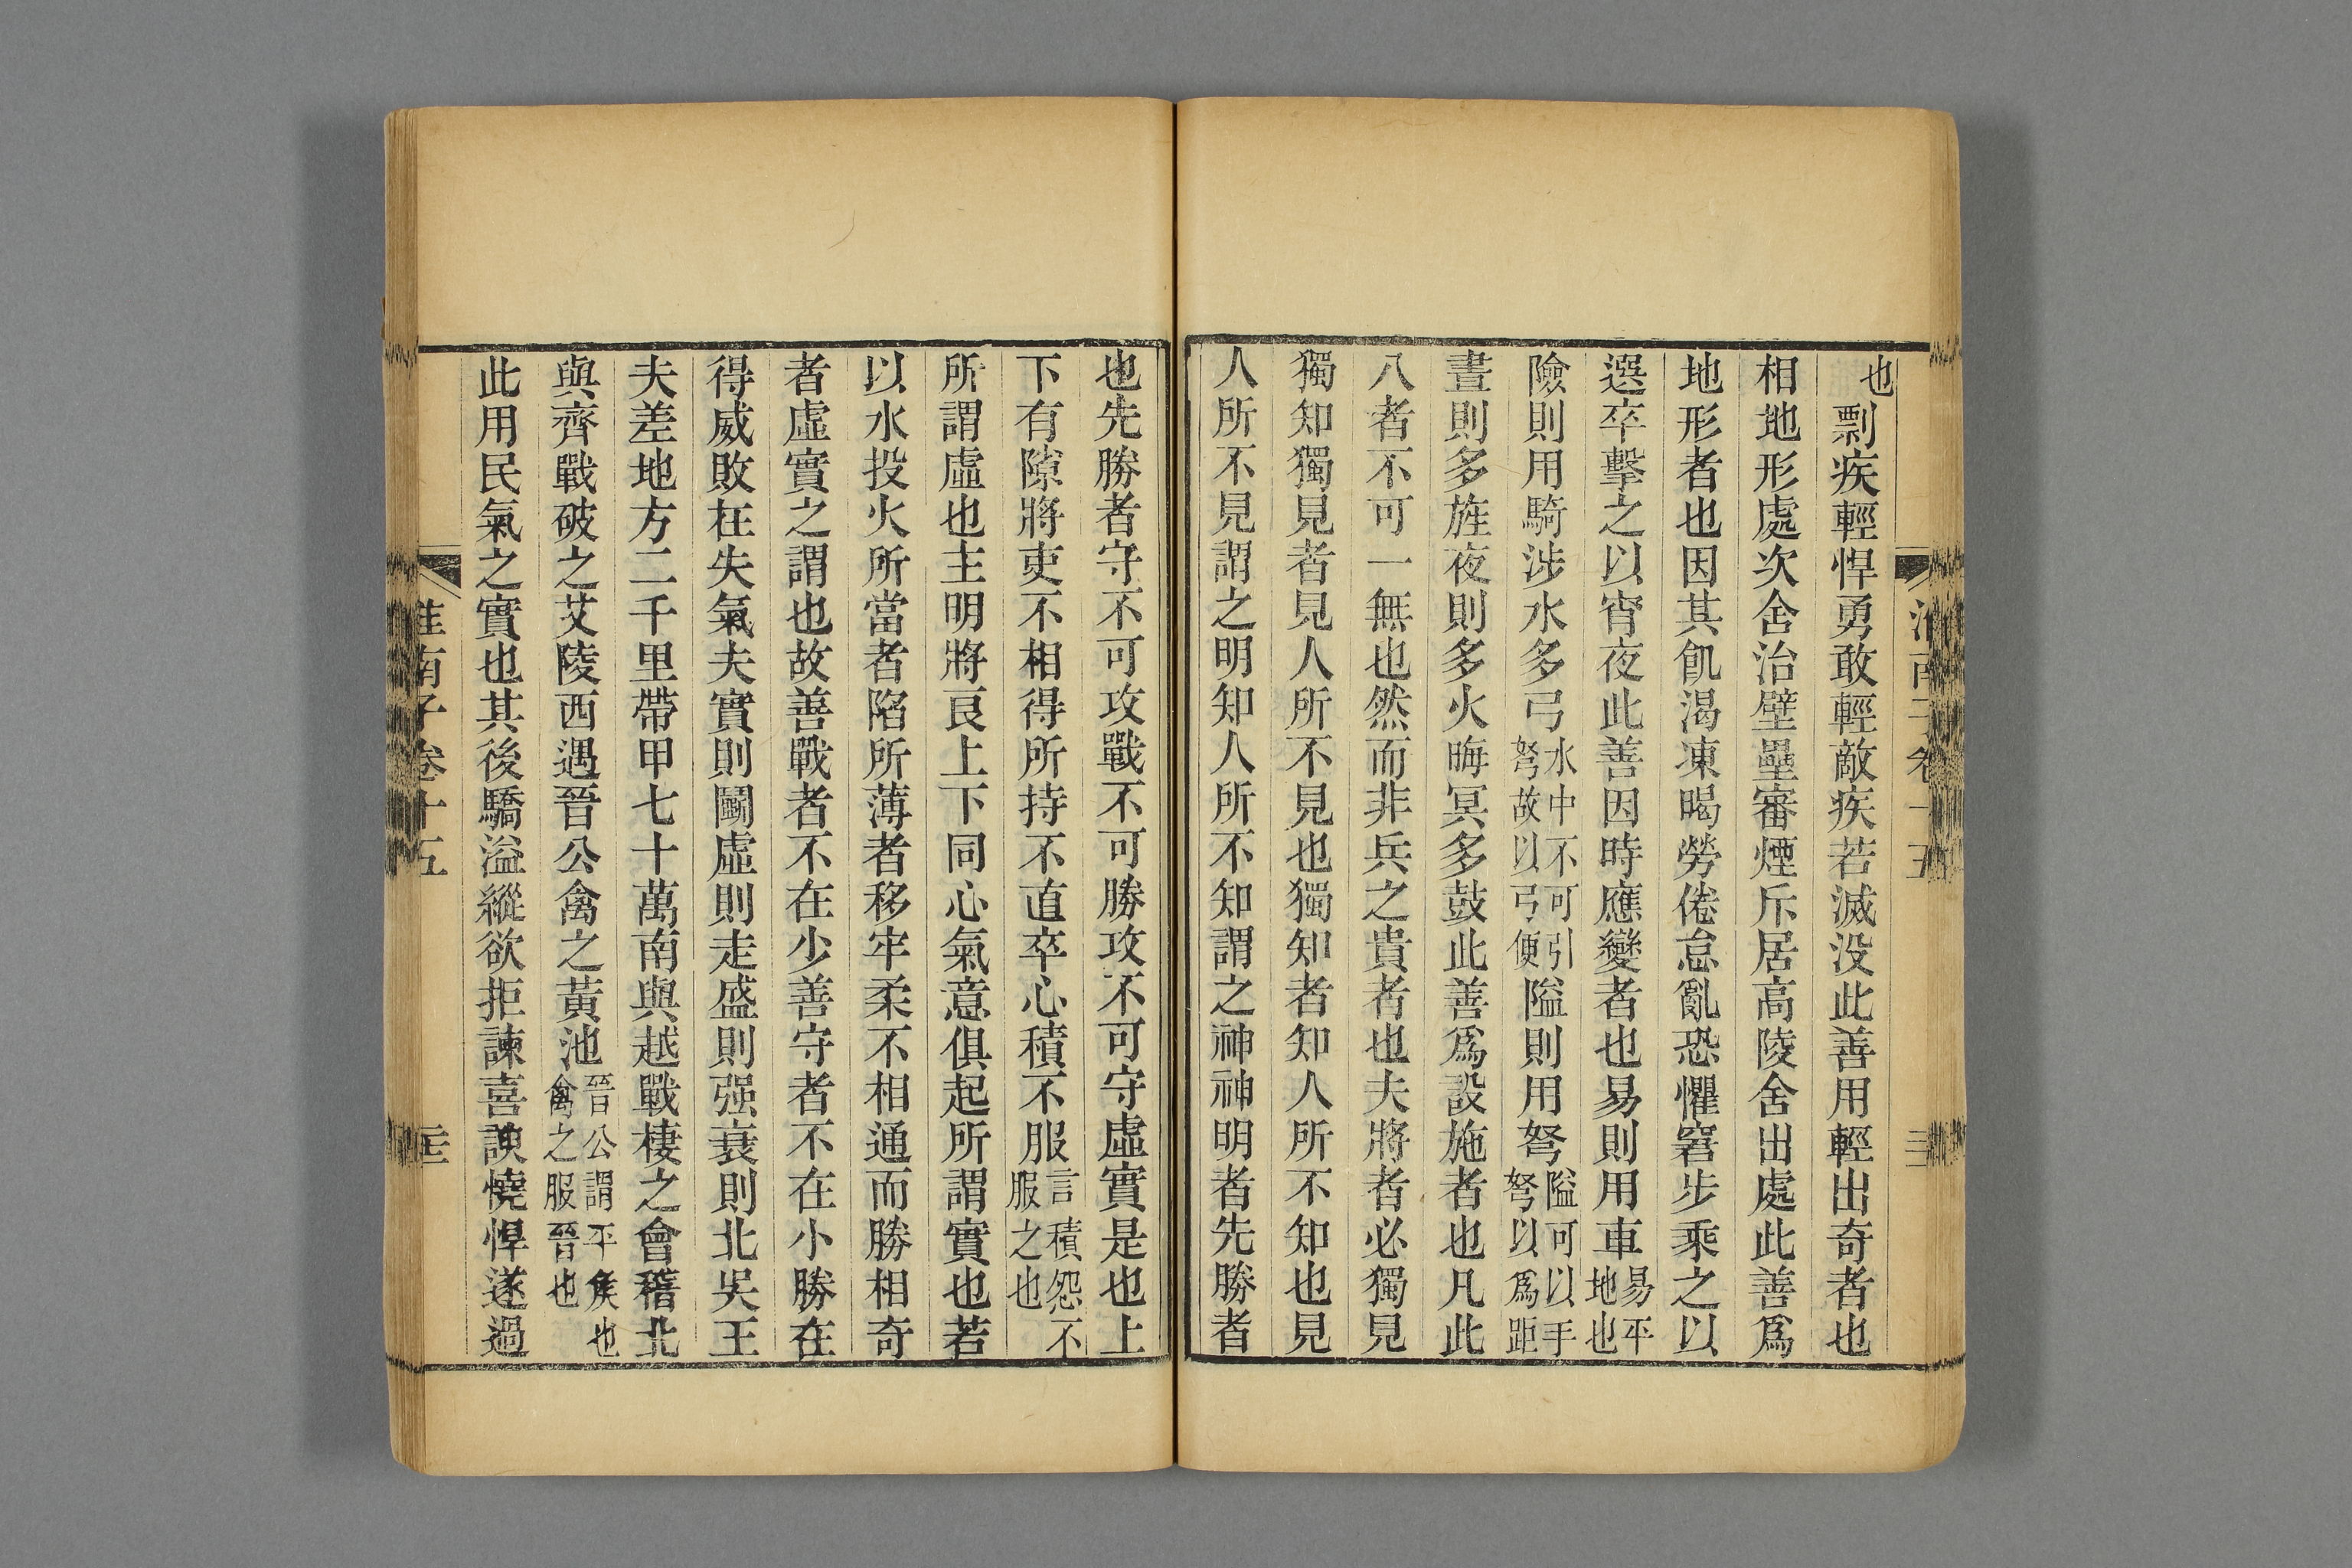 也剽疾輕悍勇敢輕敵疾若滅没此善用輕出奇者也
相地形處次舍治壁壘審煙斥居高陵舍出處此善爲
地形者也因其飢渴凍暍勞倦怠亂恐懼窘步乘之以
選卒擊之以宵夜此善因時應變者也易則用車易平地也
險則用騎涉水多弓水中不可引弩故以弓便隘則用弩隘可以手弩以爲距
晝則多旌夜則多火晦冥多鼓此善爲設施者也凡此
八者不可一無也然而非兵之貴者也夫將者必獨見
獨知獨見者見人所不見也獨知者知人所不知也見
人所不見謂之明知人所不知謂之神神明者先勝者
也先勝者守不可攻戰不可勝攻不可守虛實是也上
下有隙將吏不相得所持不直卒心積不服言積怨不服之也
所謂虛也主明將良上下同心氣意俱起所謂實也若
以水投火所當者陷所薄者移牢柔不相通而勝相奇
者虛實之謂也故善戰者不在少善守者不在小勝在
得威敗在失氣夫實則鬭虛則走盛則强衰則北吳王
夫差地方二千里帶甲七十萬南與越戰棲之會稽北
與齊戰破之艾陵西遇晉公禽之黃池晉公謂平矦也禽之服晉也
此用民氣之實也其後驕溢縱欲拒諫喜諛憢悍遂過
淮南子卷十五